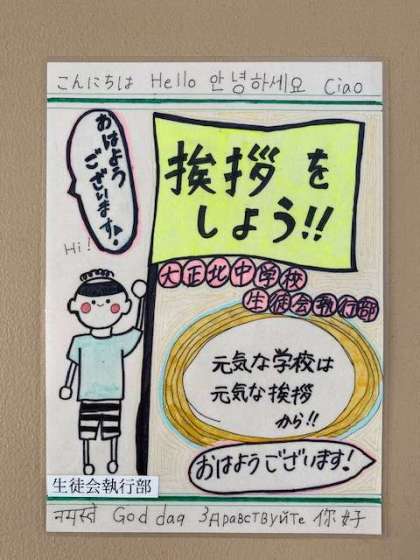 こんにちは Hello 안녕하세요 Ciao
おはよう
ございます!
Hi!
挨拶を
しよう!!
大正北中学校
生徒会執行部
元気な学校は
元気な挨拶
から!!
おはようございます!
生徒会執行部
नमस्ते God dag Здравствуйте 你好